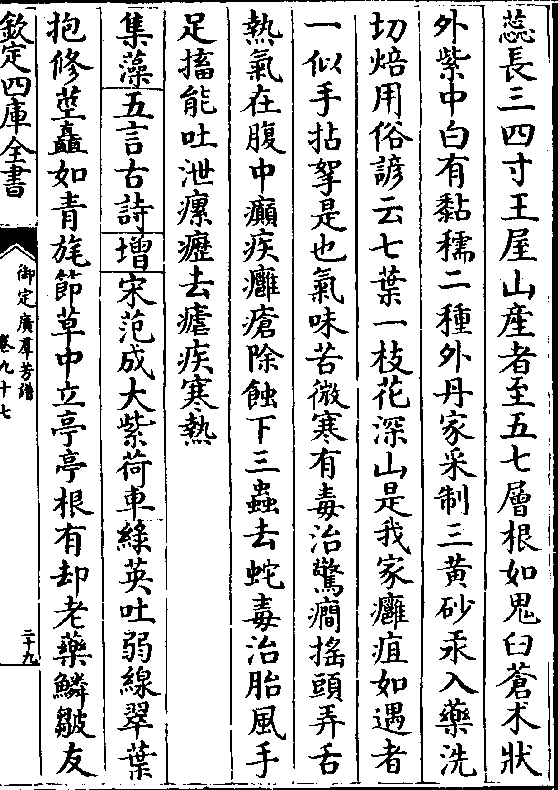 蕊長三四寸王屋山産者至五七層根如鬼臼蒼术狀
外紫中白有黏穤二種外丹家采制三黄砂汞入藥洗
切焙用俗諺云七葉一枝花深山是我家癰疽如遇者
一似手拈拏是也氣味苦微寒有毒治驚癇搖頭弄舌
熱氣在腹中癲疾癰瘡除蝕下三蟲去蛇毒治胎風手
足搐能吐泄瘰癧去瘧疾寒熱
集藻五言古詩增宋范成大紫荷車綠英吐弱線翠葉
抱修莖矗如青旄節草中立亭亭根有却老藥鱗皺友
欽定四庫全書
御定廣羣芳譜
卷九十七
二十九